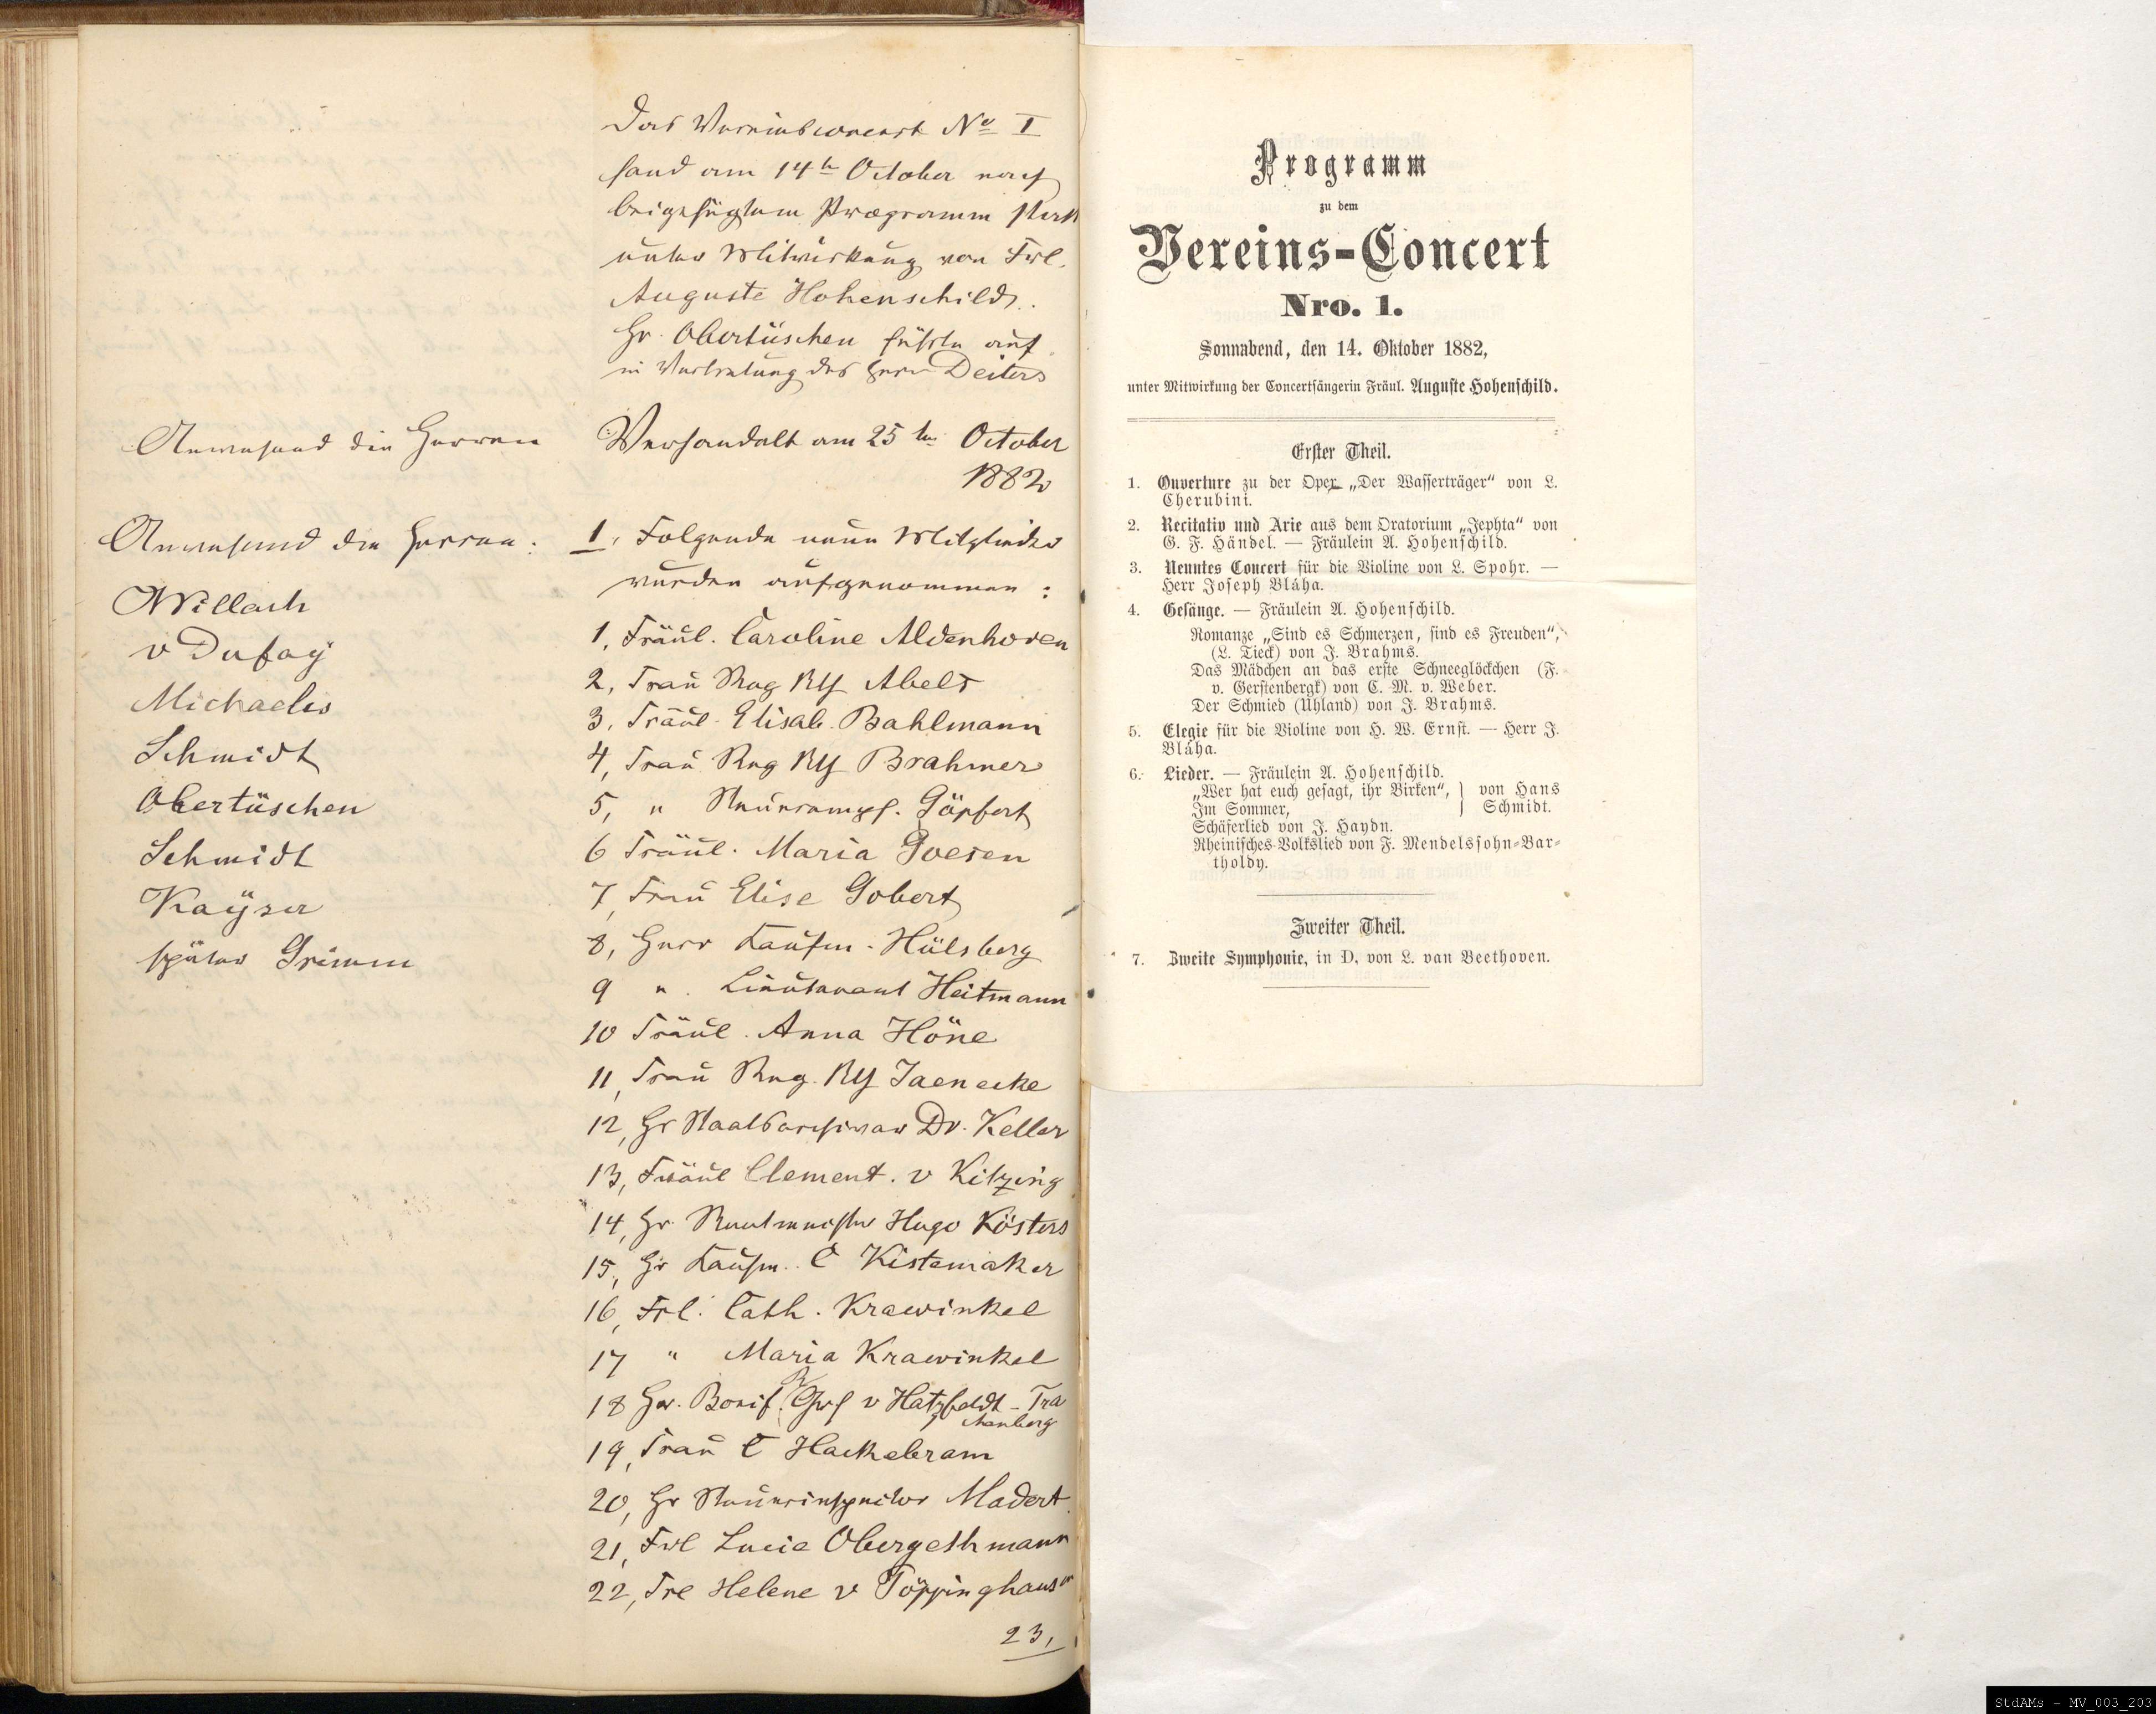 Das Vereinsconcert No I
fand am 14ten October nach
beigefügtem Programm statt
unter Mitwirkung von Frl.
Auguste Hohenschild.
Hr. Obertüschen führte auf
in Vertretung des Herrn Deiters
Anwesend die Herren
Verhandelt am 25ten October
1882
Anwesend die Herren:
Willach
v Dufay
Michaelis
Schmidt
Obertüschen
Schmidt
Kaÿser
später Grimm
1, Folgende neue Mitglieder
wurden aufgenommen:
1, Fräul. Caroline Aldenhoven
2, Frau Reg Rth Abels
3, Fräul. Elisab. Bahlmann
4, Frau Reg Rth Brahmer
5, " Steuerempf. Göpfert
6 Fräul. Maria Goesen
7, Frau Elise Gobert
8, Herr Kaufm. Hülsberg
9 " Lieutenant Heitmann
10 Fräul. Anna Höne
11, Frau Reg. Rth Jaenecke
12, Hr Staatsarchivar Dr. Keller
13, Fräul Clement. v Kitzing
14, Hr Rentmeister Hugo Kösters
15, Hr Kaufm. C Kistemaker
16, Frl. Cath. Krawinkel
17 " Maria Krawinkel
18 Hr. Bonif. Grf v Hatzfeldt-Tra
chenberg
19, Frau C Hackebram
20, Hr Steuerinspector Madert
21, Frl Lucie Obergethmann
22, Frl Helene v Töppinghausen
23,
Programm
zu dem
Vereins-Concert
Nro. 1.
Sonnabend, den 14. Oktober 1882,
unter Mitwirkung der Concertsängerin Fräul. Auguste Hohenschild.
Erster Theil.
1. Ouverture zu der Oper „Der Wasserträger“ von L.
Cherubini.
2. Recitativ und Arie aus dem Oratorium „Jephta“ von
G. F. Händel. — Fräulein A. Hohenschild.
3. Neuntes Concert für die Violine von L. Spohr. —
Herr Joseph Bláha.
4. Gesänge. — Fräulein A. Hohenschild.
Romanze „Sind es Schmerzen, sind es Freuden“,
(L. Tieck) von J. Brahms.
Das Mädchen an das erste Schneeglöckchen (F.
v. Gerstenbergk) von C. M. v. Weber.
Der Schmied (Uhland) von J. Brahms.
5. Elegie für die Violine von H. W. Ernst. — Herr J.
Bláha.
6. Lieder. — Fräulein A. Hohenschild.
„Wer hat euch gesagt, ihr Birken“, } von Hans
Im Sommer, } Schmidt.
Schäferlied von J. Haydn.
Rheinisches Volkslied von F. Mendelssohn-Bar-
tholdy.
Zweiter Theil.
7. Zweite Symphonie, in D, von L. van Beethoven.
StdAMs - MV_003_203